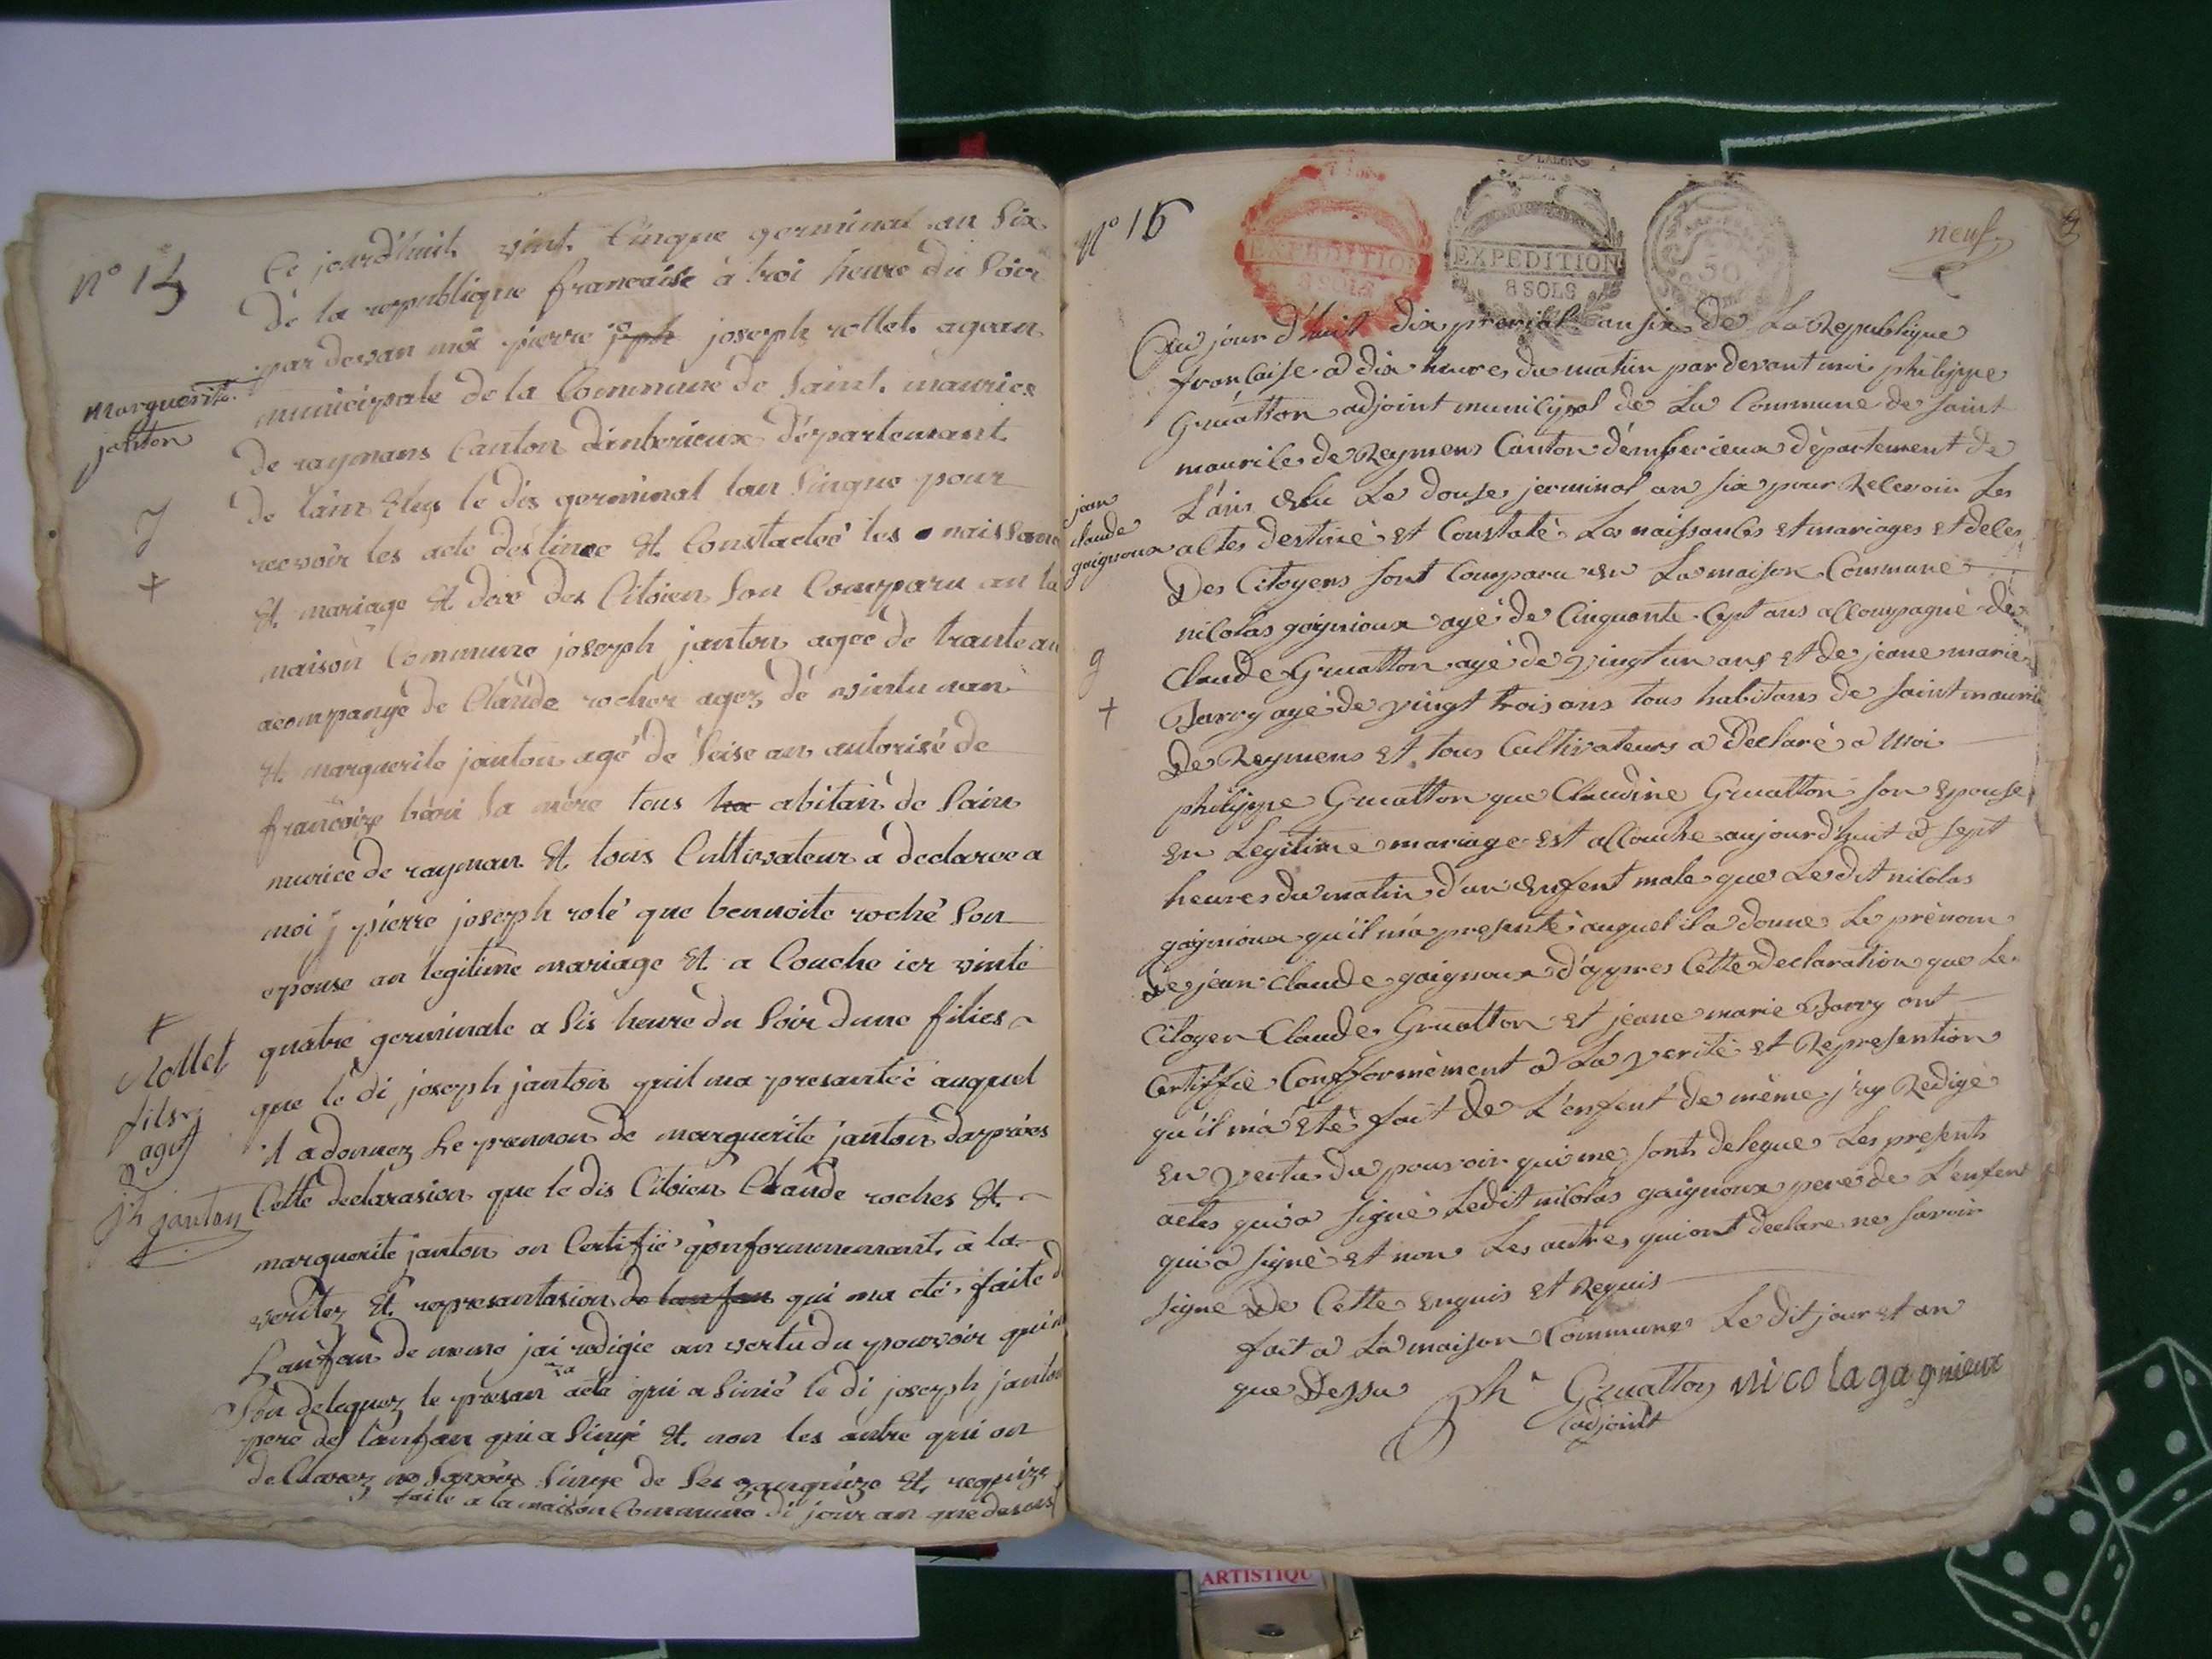 N° 15
Ce jourd'huit vint Cinque germinal an Six
de la republique francaise à troi heure du Soir
par devan moi pierre jph joseph rollet agean
municipale de la Commune de Saint maurice
de raymans Canton dinberieux département
de lain Eleu le dis germinal lan Sinque pour
recevoir les acte destinee Et Constactée les naissance
Et mariage Et dece des Citoien Son Comparu an la
maison Commune joseph janton agee de trante an
acompangé de Claude rocher agez de vintu nan
Et marguerite janton agé de Seise an autorisé de
francoize béni sa mère tous ha abitan de Sain
murice de rayman Et tous Cultivateur a declaree a
moi pierre joseph rolé que bennoite roché Son
epouse an legitime mariage Et a Couche ier vinte
quatre germinale a Sis heure du Soir dune filies
que le di joseph janton quil ma presantée auquel
il a donnez Le prennon de marguerite janton daprées
Cette declarasion que le dis Citoien Claude roches Et
marguerite janton on Certifié qonformemmant a la
veritez Et represantasion de lanfan qui ma eté faite d
Lanfan de meme jai redigie an vertu du pouvoir qui m
Son deleguez le presan acte qui a Sinié le di joseph janton
pere de lanfan qui a Sinyé Et non les autre qui on
declarez ne Savoir Sinye de Ses zanquize Et requize
faite a la maison Commune di jour an que desus
Marguerite
janton
7
+
+
Rollet
fils
agt
jh janton
N° 16
EXPEDITION
8 SOLS
EXPEDITION
8 SOLS
50
neuf
9
Au jour d'huit dix prerial an six de La Republique
françaife a dix heures du matin par devant moi philippe
Gruatton adjoint municipal de La Commune de faint
maurice de Reymens Canton d'emberieux département de
L'ain Elu Le douse jerminal an six pour Recevoir Les
actes destiné et Constaté Les naissances et mariages et deces
Des Citoyens sont Comparu en La maison Commune
nicolas gaignioux agé de Cinquante Cept ans accompagné de
Claude Gruatton agé de vingt un ans et de jeane marie
Barry agé de vingt trois ans tous habitans de saint maurice
De Reymens et tous Cultivateurs a declaré a moi
philippe Gruatton que Claudine Gruatton son Epouse
En Legitime mariage est accouche aujourd'huit a sept
heures du matin d'un Enfent male que Le dit nicolas
gaignioux qu'il m'a presenté auquel il a donne Le prenom
de jean Claude gaignoux d'apres Cette declaration que Le
Citoyen Claude Gruatton et jeane marie Barry ont
Certiffié Conformement a La verité et Represention
qu'il m'a Eté fait de L'enfent de même j'ay Redigé
En vertu du pouvoir qui me sont delegue Les presents
actes qui a signé Ledit nicolas gaignoux pere de L'enfent
qui a signé et non Les autres qui ont declare ne savoir
signe de Cette enquis et Requis
fait a La maison Commune Le dit jour et an
que Dessu Ph Gruatton nicolagagnieux
adjoint
jean
claude
gaignoux
9
+
ARTISTIQU